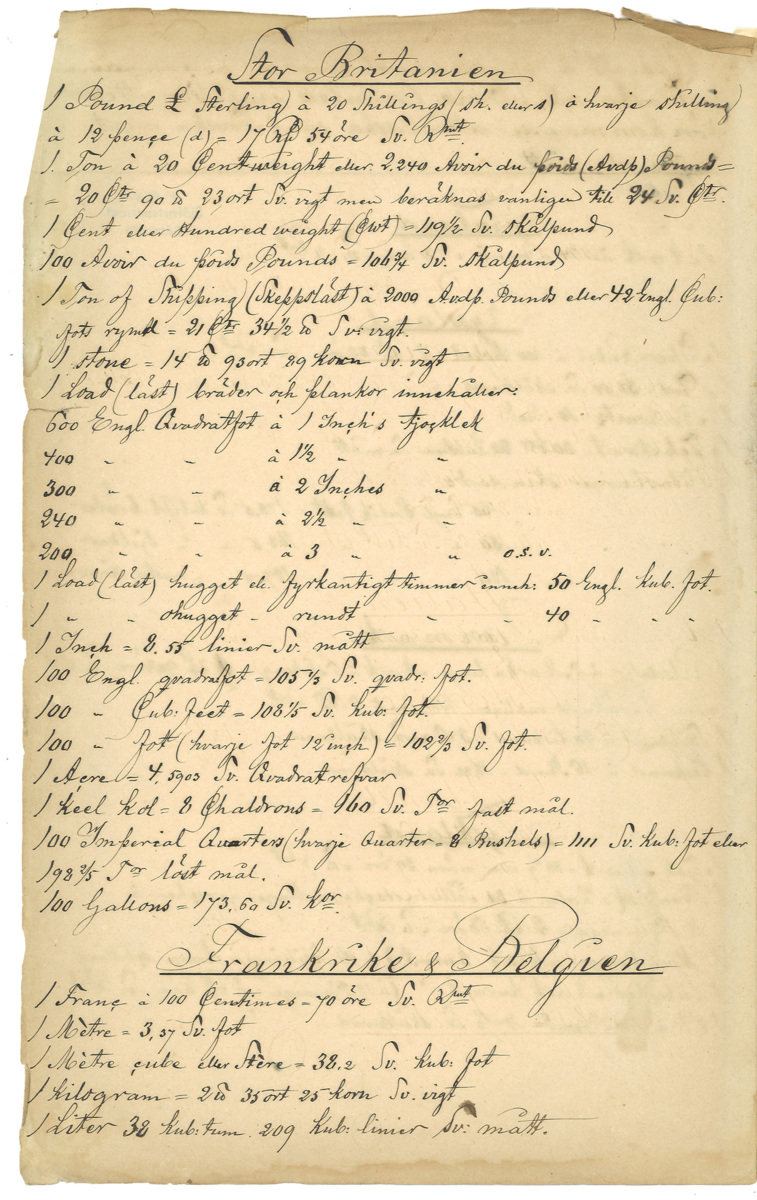 Stor Britanien
1 Pound £ Sterling à 20 Shillings (sh. eller s) à hvarje skilling
à 12 pençe (d) = 17 Rd 54 öre Sv. Rmt
1. Ton à 20 Çentweight eller 2.240 Avoir du poids (Avdp) Pounds =
= 20 Ctr 90 ℔ 23 ort Sv. vigt men beräknas vanligen till 24 Sv. Ctr.
1 Çent eller Hundred weight (Çwt) = 119 1/2 Sv. skålpund
100 Avoir du poids Pounds = 106 3/4 Sv. skålpund
1 Ton of Shipping (Skeppsläst) à 2000 Avdp. Pounds eller 42 Engl. Çub:
fots rymd = 21 Ctr 34 1/2 ℔ Sv: vigt.
1 stone = 14 ℔ 93 ort 89 korn Sv. vigt
1 Load (läst) bräder och plankor innehåller:
600 Engl. Qvadratfot à 1 Inçh's tjoçklek
400 " " à 1 1/2 " "
300 " " à 2 Inçhes "
240 " " à 2 1/2 " "
200 " " à 3 " " o.s.v.
1 Load (läst) hugget el. fyrkantigt timmer inneh: 50 Engl. kub. fot.
1 " " ohugget " rundt " " 40 " " "
1 Inçh = 8.55 linier Sv. mått
100 Engl. qvadratfot = 105 1/3 Sv. qvadr: fot.
100 " Çub: feet = 108 1/5 Sv. kub: fot.
100 " fot (hvarje fot 12 inçh) = 102 2/3 Sv. fot.
1 Açre = 4,5903 Sv. Qvadratrefvar
1 Keel kol = 8 Çhaldrons = 160 Sv. Tor fast mål.
100 Imperial Quarters (hvarje Quarter = 8 Bushels) = 1111 Sv. kub: fot eller
198 2/5 Tor löst mål.
100 Gallons = 173,60 Sv. kor.
Frankrike & Belgien
1 Franç à 100 Çentimes = 70 öre Sv. Rmt
1 Mètre = 3,37 Sv. fot
1 Mètre çube eller Stère = 38,2 Sv. kub: fot
1 Kilogram = 2 ℔ 35 ort 25 korn Sv. vigt
1 Liter 38 kub: tum. 209 kub: linier Sv: mått.